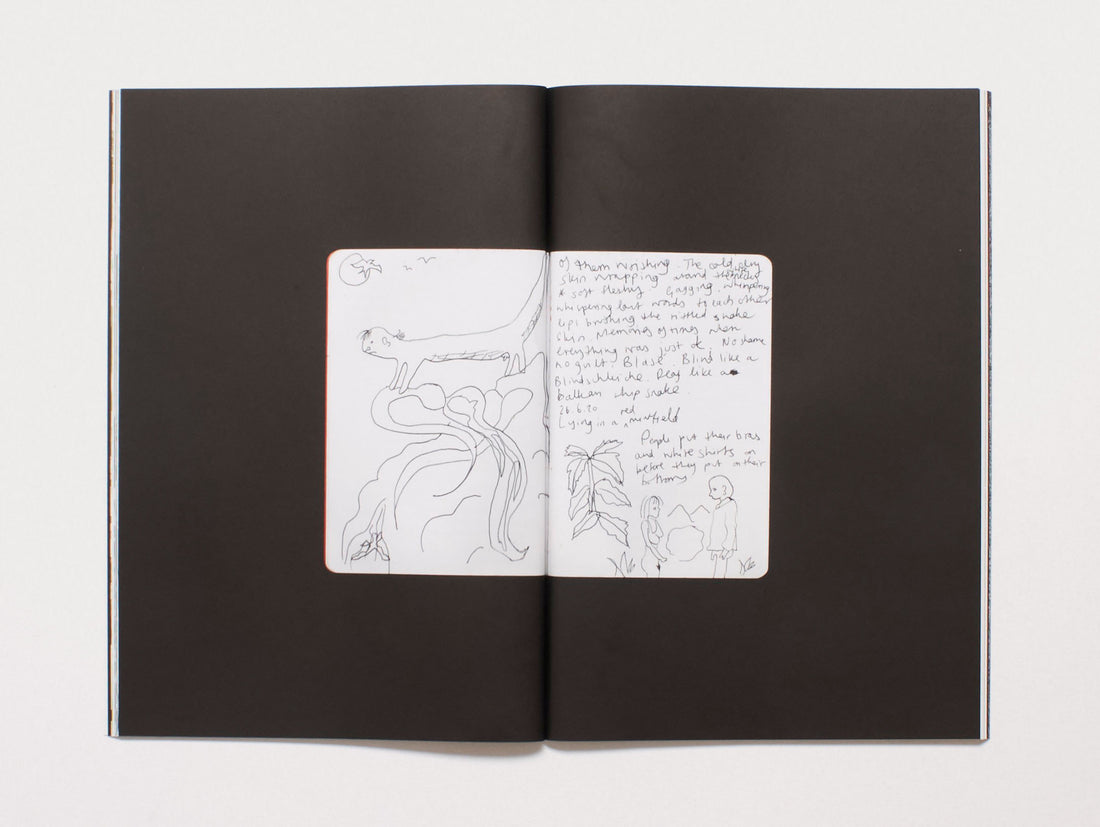 of them noishing. The cold dry
skin wrapping around the
& soft fleshy. Gagging. whimpering
whispering last words to each other
lips brushing the mottled snake
skin. Memories of times when
everything was just ok. No shame
no guilt. Blasé. Blind like a
Blindschleiche. Deaf like a
balkan whip snake.
26.6.20 red
Lying in a meatfield
People put their bras
and white shirts on
before they put on their
bottoms